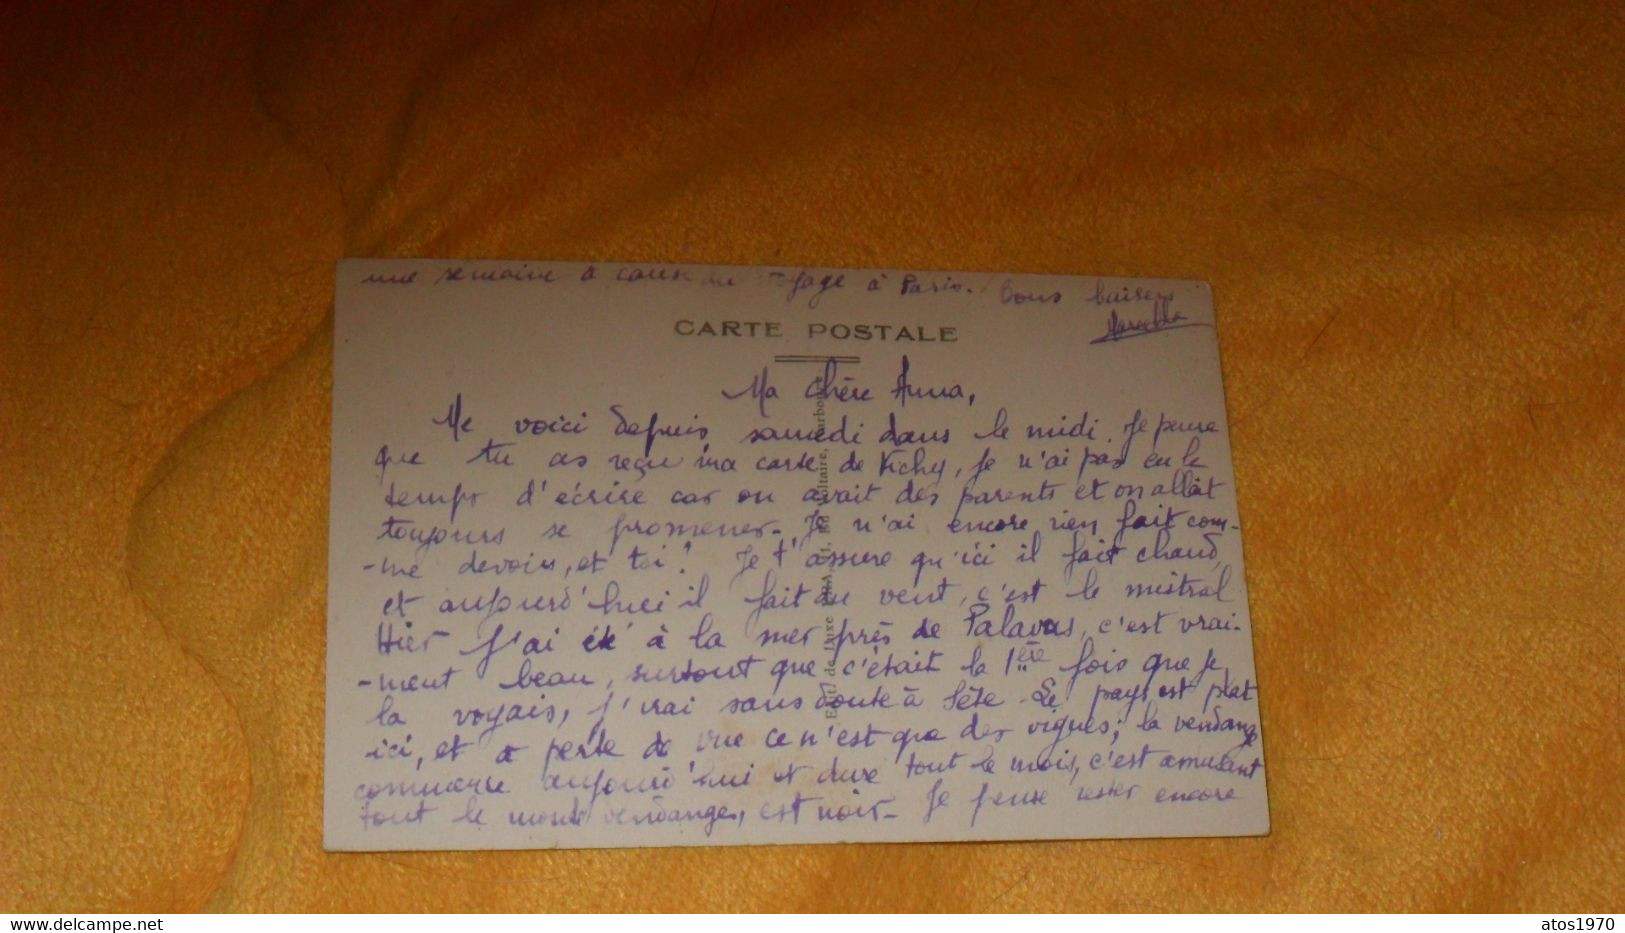 une semaine à cause du voyage à Paris. Bons baisers
CARTE POSTALE
Ma chère Anna,
Me voici depuis samedi dans le midi. Je pense
que tu as reçu ma carte de Vichy, je n'ai pas eu le
temps d'écrire car on avait des parents et on allait
toujours se promener. Je n'ai encore rien fait com-
-me devoirs, et toi ? Je t'assure qu'ici il fait chaud,
et aujourd'hui il fait du vent, c'est le mistral
Hier j'ai été à la mer près de Palavas, c'est vrai-
-ment beau, surtout que c'était la 1ère fois que je
la voyais, j'irai sans doute à Sète. Le pays est plat
ici, et à perte de vue ce n'est que des vignes; la vendange
commence aujourd'hui et dure tout le mois, c'est amusant
tout le monde vendange, est noir. Je pense rester encore
Edit. de Luxe voltaire,
www.delcampe.net
atos1970